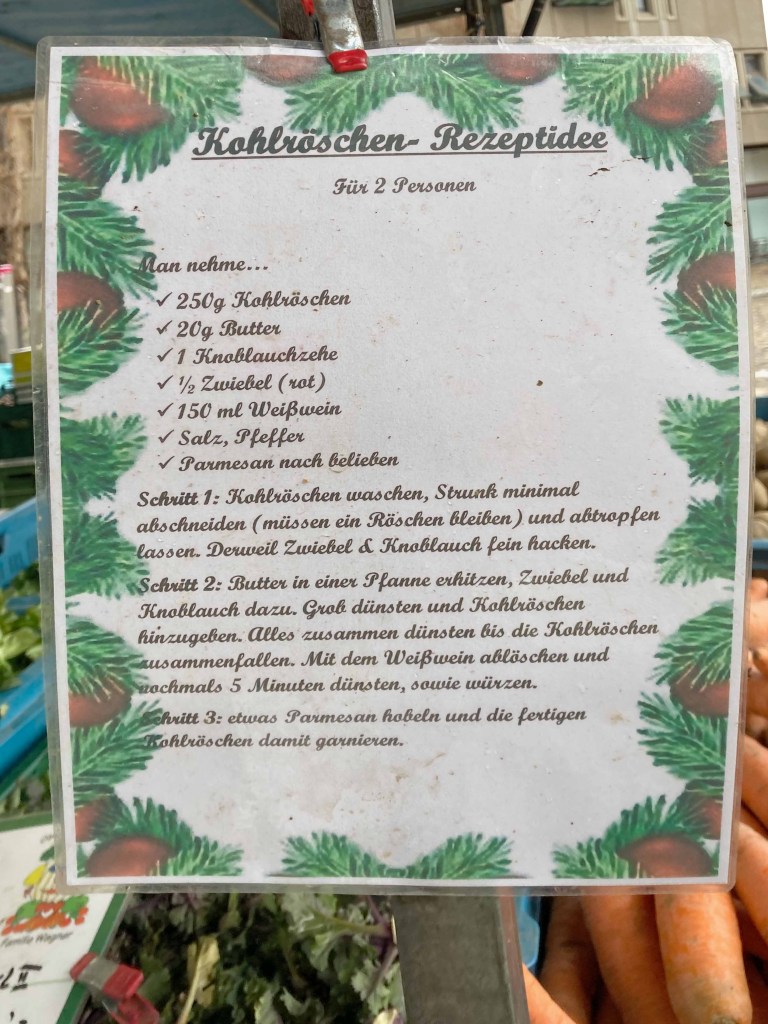 Kohlröschen- Rezeptidee
Für 2 Personen
Man nehme...
✓ 250g Kohlröschen
✓ 20g Butter
✓ 1 Knoblauchzehe
✓ ½ Zwiebel (rot)
✓ 150 ml Weißwein
✓ Salz, Pfeffer
✓ Parmesan nach belieben
Schritt 1: Kohlröschen waschen, Strunk minimal
abschneiden (müssen ein Röschen bleiben) und abtropfen
lassen. Derweil Zwiebel & Knoblauch fein hacken.
Schritt 2: Butter in einer Pfanne erhitzen, Zwiebel und
Knoblauch dazu. Grob dünsten und Kohlröschen
hinzugeben. Alles zusammen dünsten bis die Kohlröschen
zusammenfallen. Mit dem Weißwein ablöschen und
nochmals 5 Minuten dünsten, sowie würzen.
Schritt 3: etwas Parmesan hobeln und die fertigen
Kohlröschen damit garnieren.
Familie Wagner
II